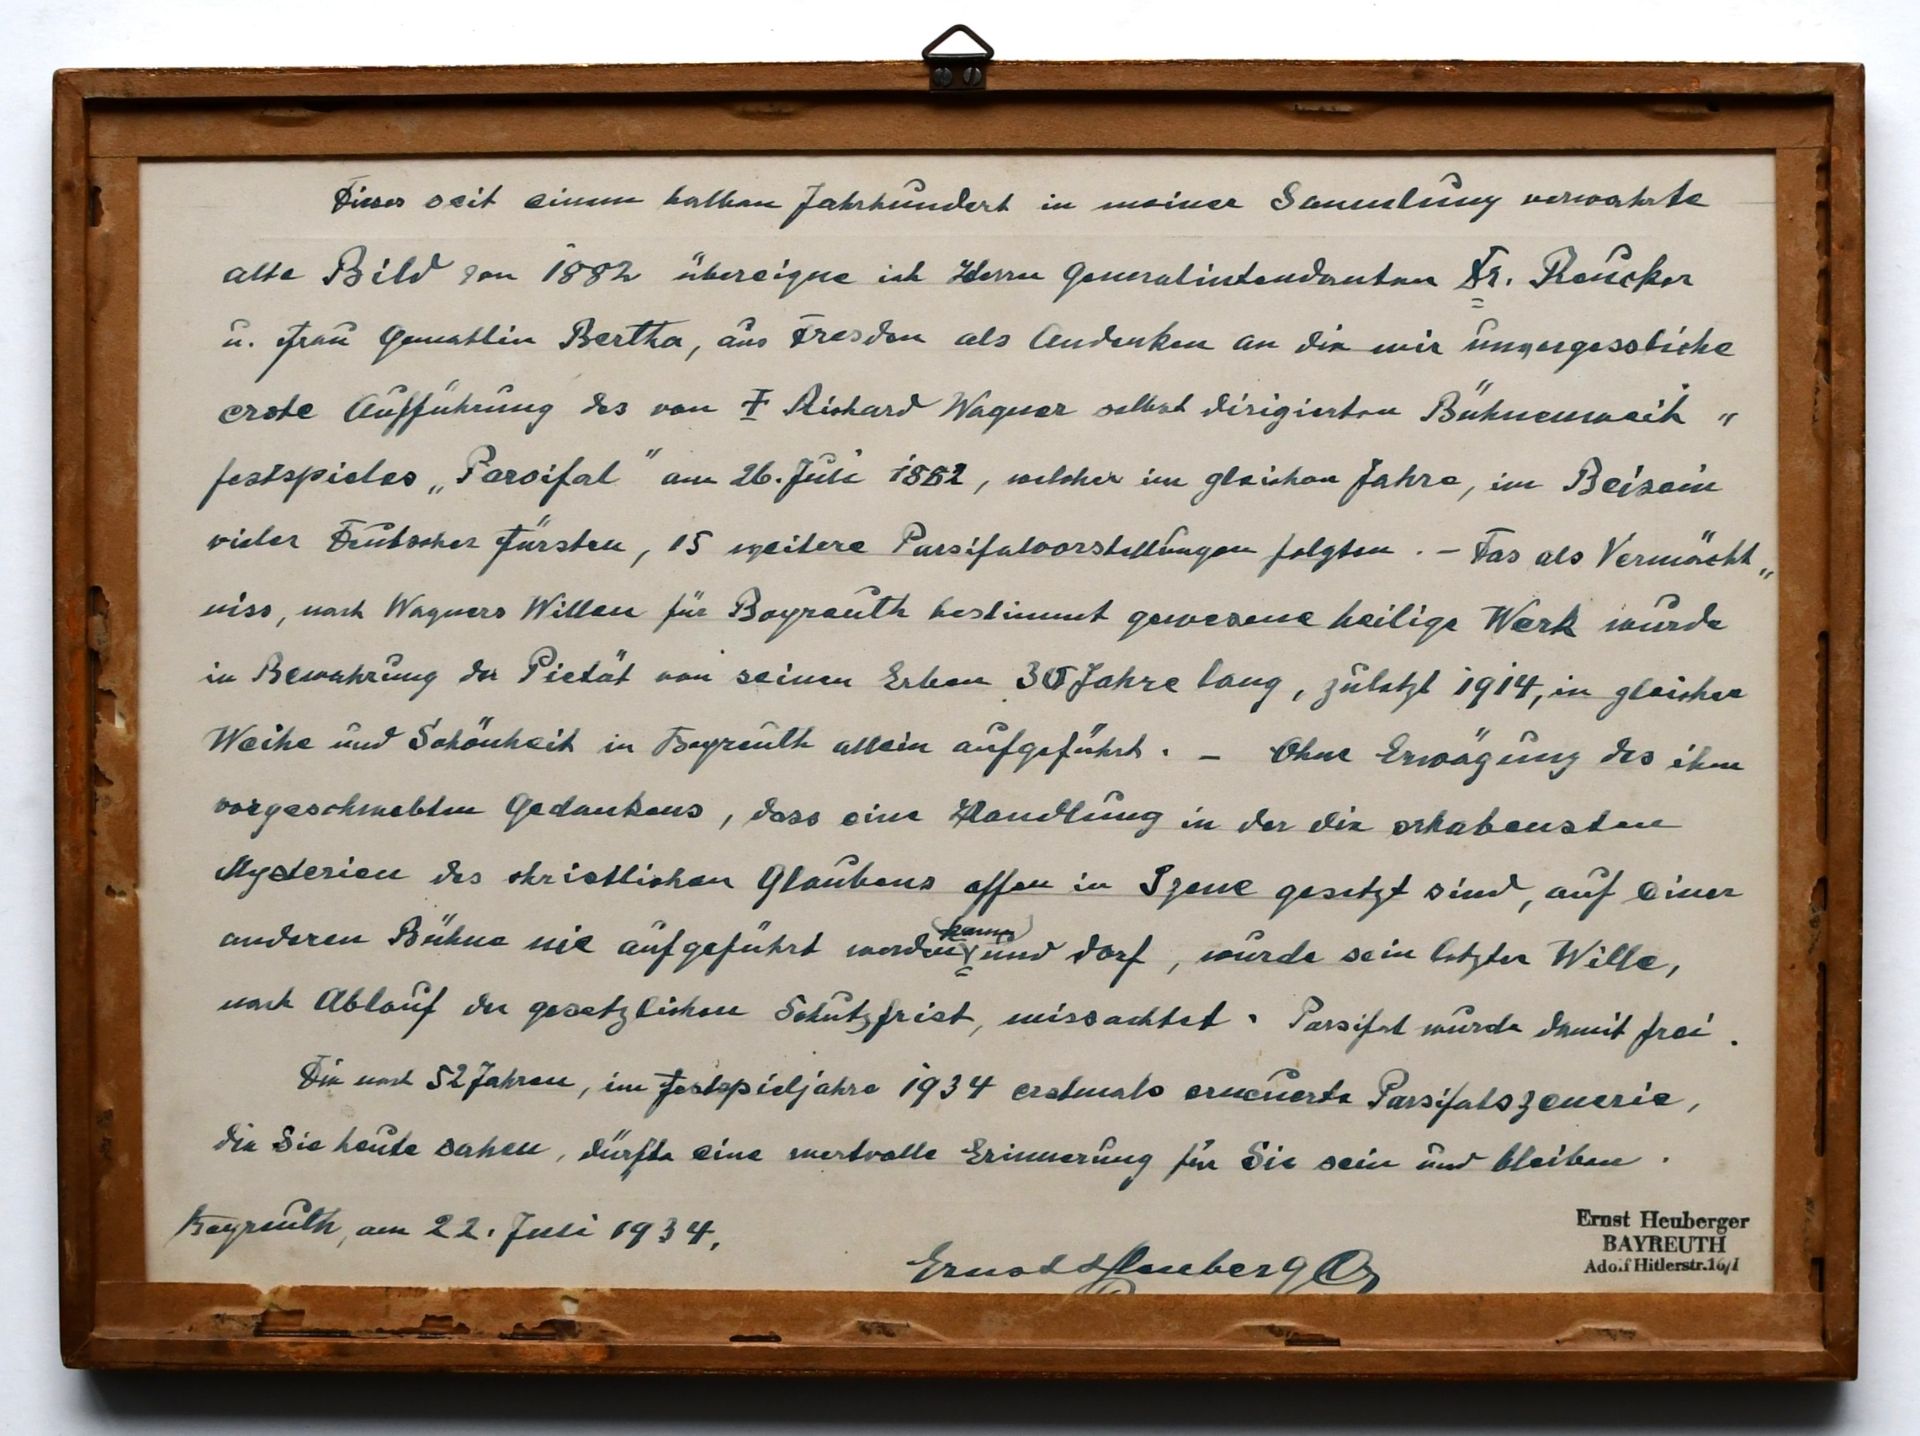 Dieses seit einem halben Jahrhundert in meiner Sammlung verwahrte
alte Bild von 1882 übereigne ich Herrn Generalintendanten Dr. Reucker
u. Frau Gemahlin Bertha, aus Dresden als Andenken an die mir unvergessliche
erste Aufführung des von † Richard Wagner selbst dirigierten Bühnenweih„
festspieles „Parsifal“ am 26. Juli 1882, welcher im gleichen Jahre, im Beisein
vieler Deutscher Fürsten, 15 weitere Parsifalvorstellungen folgten. – Das als Vermächt„
niss, nach Wagners Willen für Bayreuth bestimmt gewesene heilige Werk wurde
in Bewahrung der Pietät von seinen Erben 30 Jahre lang, zuletzt 1914, in gleicher
Weihe und Schönheit in Bayreuth allein aufgeführt. – Ohne Erwägung des ihm
vorgeschwebten Gedankens, dass eine Handlung in der die erhabensten
Mysterien des christlichen Glaubens offen in Szene gesetzt sind, auf einer
anderen Bühne nie aufgeführt werden (kann) und darf, wurde sein letzter Wille,
nach Ablauf der gesetzlichen Schutzfrist, missachtet. Parsifal wurde damit frei.
Die nach 52 Jahren, im Festspieljahre 1934 erstmals erneuerte Parsifalszenerie,
die Sie heute sahen, dürfte eine wertvolle Erinnerung für Sie sein und bleiben.
Bayreuth, am 22. Juli 1934.
Ernst Heuberger
Ernst Heuberger
BAYREUTH
Adolf Hitlerstr.16/I